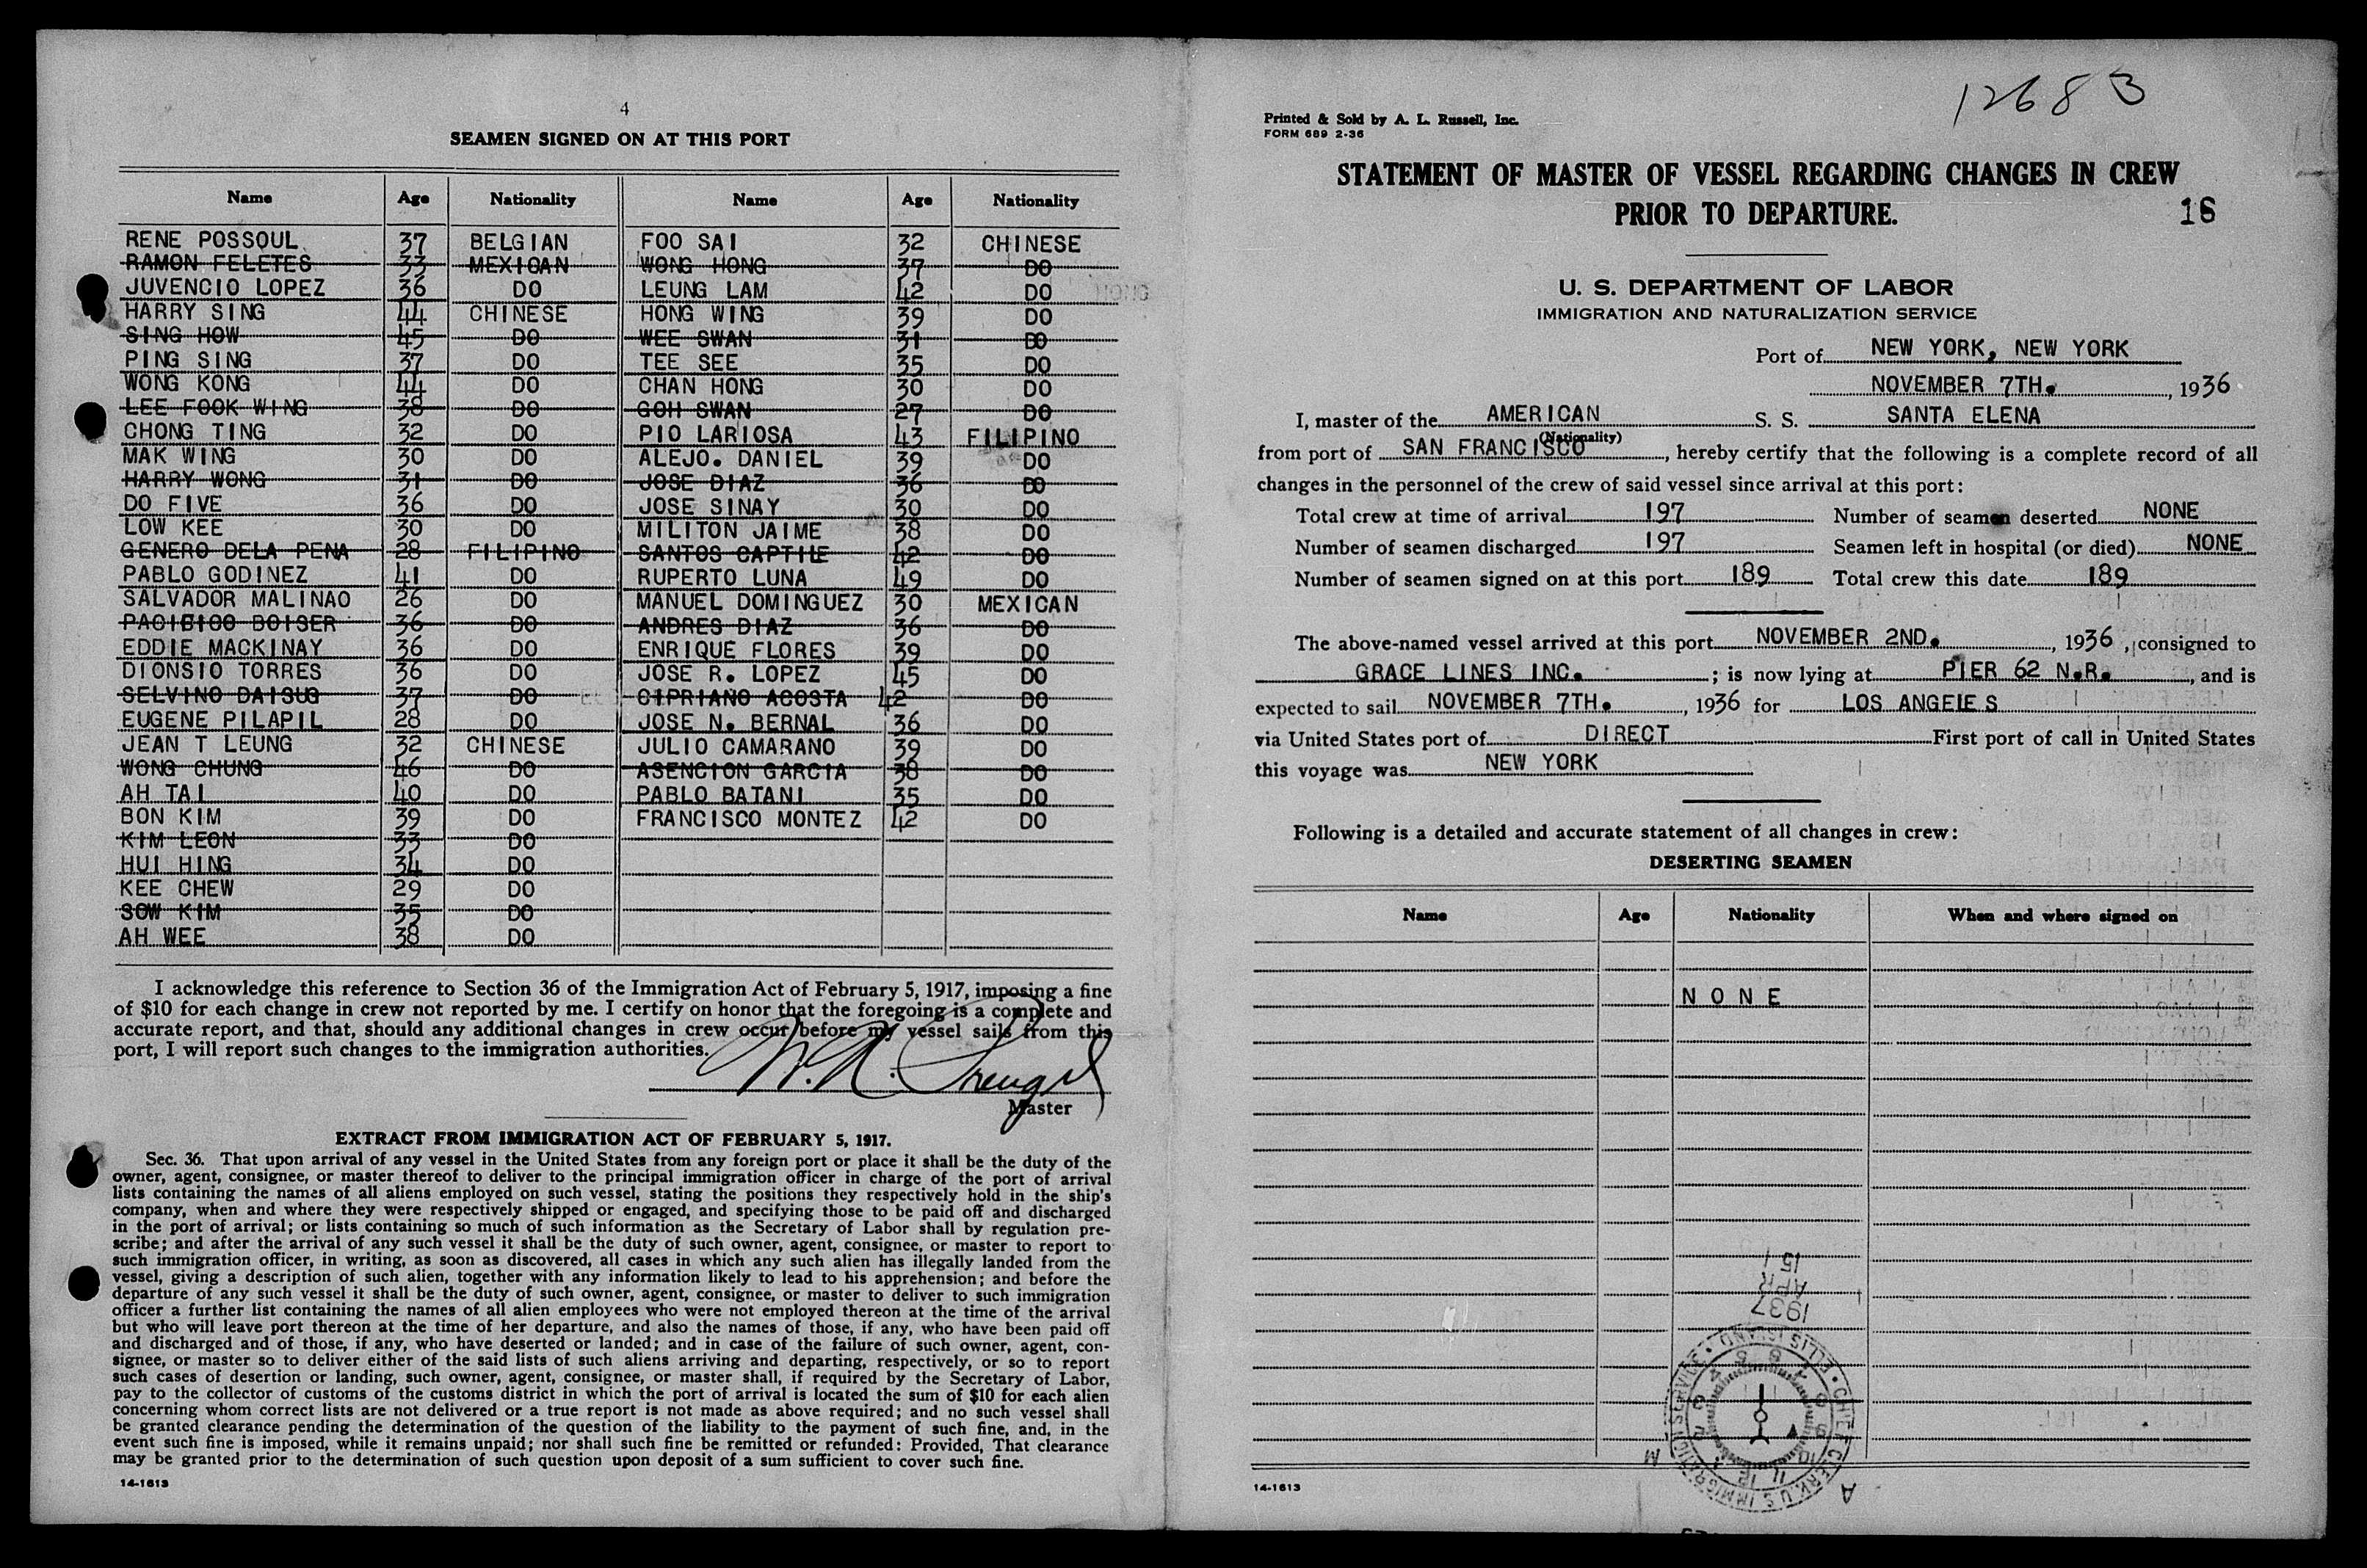 4
SEAMEN SIGNED ON AT THIS PORT
Name Age Nationality Name Age Nationality
RENE POSSOUL 37 BELGIAN FOO SAI 32 CHINESE
RAMON FELETES 33 MEXICAN WONG HONG 37 DO
JUVENCIO LOPEZ 36 DO LEUNG LAM 42 DO
HARRY SING 44 CHINESE HONG WING 39 DO
SING HOW 45 DO WEE SWAN 31 DO
PING SING 37 DO TEE SEE 35 DO
WONG KONG 44 DO CHAN HONG 30 DO
LEE FOOK WING 38 DO GOH SWAN 27 DO
CHONG TING 32 DO PIO LARIOSA 43 FILIPINO
MAK WING 30 DO ALEJO. DANIEL 39 DO
HARRY WONG 31 DO JOSE DIAZ 36 DO
DO FIVE 36 DO JOSE SINAY 30 DO
LOW KEE 30 DO MILITON JAIME 38 DO
GENERO DELA PENA 28 FILIPINO SANTOS CAPTILE 42 DO
PABLO GODINEZ 41 DO RUPERTO LUNA 49 DO
SALVADOR MALINAO 26 DO MANUEL DOMINGUEZ 30 MEXICAN
PACIBICO BOISER 36 DO ANDRES DIAZ 36 DO
EDDIE MACKINAY 36 DO ENRIQUE FLORES 39 DO
DIONSIO TORRES 36 DO JOSE R. LOPEZ 45 DO
SELVINO DAISUG 37 DO CIPRIANO ACOSTA 42 DO
EUGENE PILAPIL 28 DO JOSE N. BERNAL 36 DO
JEAN T LEUNG 32 CHINESE JULIO CAMARANO 39 DO
WONG CHUNG 46 DO ASENCION GARCIA 38 DO
AH TAI 40 DO PABLO BATANI 35 DO
BON KIM 39 DO FRANCISCO MONTEZ 42 DO
KIM LEON 33 DO
HUI HING 34 DO
KEE CHEW 29 DO
SOW KIM 35 DO
AH WEE 38 DO
I acknowledge this reference to Section 36 of the Immigration Act of February 5, 1917, imposing a fine
of $10 for each change in crew not reported by me. I certify on honor that the foregoing is a complete and
accurate report, and that, should any additional changes in crew occur before my vessel sails from this
port, I will report such changes to the immigration authorities.
Master
EXTRACT FROM IMMIGRATION ACT OF FEBRUARY 5, 1917.
Sec. 36. That upon arrival of any vessel in the United States from any foreign port or place it shall be the duty of the
owner, agent, consignee, or master thereof to deliver to the principal immigration officer in charge of the port of arrival
lists containing the names of all aliens employed on such vessel, stating the positions they respectively hold in the ship's
company, when and where they were respectively shipped or engaged, and specifying those to be paid off and discharged
in the port of arrival; or lists containing so much of such information as the Secretary of Labor shall by regulation pre-
scribe; and after the arrival of any such vessel it shall be the duty of such owner, agent, consignee, or master to report to
such immigration officer, in writing, as soon as discovered, all cases in which any such alien has illegally landed from the
vessel, giving a description of such alien, together with any information likely to lead to his apprehension; and before the
departure of any such vessel it shall be the duty of such owner, agent, consignee, or master to deliver to such immigration
officer a further list containing the names of all alien employees who were not employed thereon at the time of the arrival
but who will leave port thereon at the time of her departure, and also the names of those, if any, who have been paid off
and discharged and of those, if any, who have deserted or landed; and in case of the failure of such owner, agent, con-
signee, or master so to deliver either of the said lists of such aliens arriving and departing, respectively, or so to report
such cases of desertion or landing, such owner, agent, consignee, or master shall, if required by the Secretary of Labor,
pay to the collector of customs of the customs district in which the port of arrival is located the sum of $10 for each alien
concerning whom correct lists are not delivered or a true report is not made as above required; and no such vessel shall
be granted clearance pending the determination of the question of the liability to the payment of such fine, and, in the
event such fine is imposed, while it remains unpaid; nor shall such fine be remitted or refunded: Provided, That clearance
may be granted prior to the determination of such question upon deposit of a sum sufficient to cover such fine.
14-1613
12683
Printed & Sold by A. L. Russell, Inc.
FORM 689 2-36
STATEMENT OF MASTER OF VESSEL REGARDING CHANGES IN CREW
PRIOR TO DEPARTURE.
16
U. S. DEPARTMENT OF LABOR
IMMIGRATION AND NATURALIZATION SERVICE
Port of NEW YORK, NEW YORK
NOVEMBER 7TH. , 1936
I, master of the AMERICAN S. S. SANTA ELENA
(Nationality)
from port of SAN FRANCISCO , hereby certify that the following is a complete record of all
changes in the personnel of the crew of said vessel since arrival at this port:
Total crew at time of arrival 197 Number of seamen deserted NONE
Number of seamen discharged 197 Seamen left in hospital (or died) NONE
Number of seamen signed on at this port 189 Total crew this date 189
The above-named vessel arrived at this port NOVEMBER 2ND. , 1936 , consigned to
GRACE LINES INC. ; is now lying at PIER 62 N.R. , and is
expected to sail NOVEMBER 7TH. , 1936 for LOS ANGELES
via United States port of DIRECT First port of call in United States
this voyage was NEW YORK
Following is a detailed and accurate statement of all changes in crew:
DESERTING SEAMEN
Name Age Nationality When and where signed on
NONE
1937
APR
15
CHIEF CLERK U.S. IMMIGRATION SERVICE • ELLIS ISLAND •
A M
14-1613